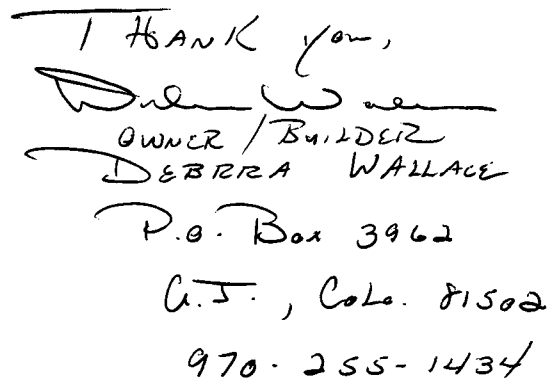 THANK you,
OWNER / BUILDER
DEBRRA WALLACE
P.O. Box 3962
G.J., Colo. 81502
970 - 255 - 1434